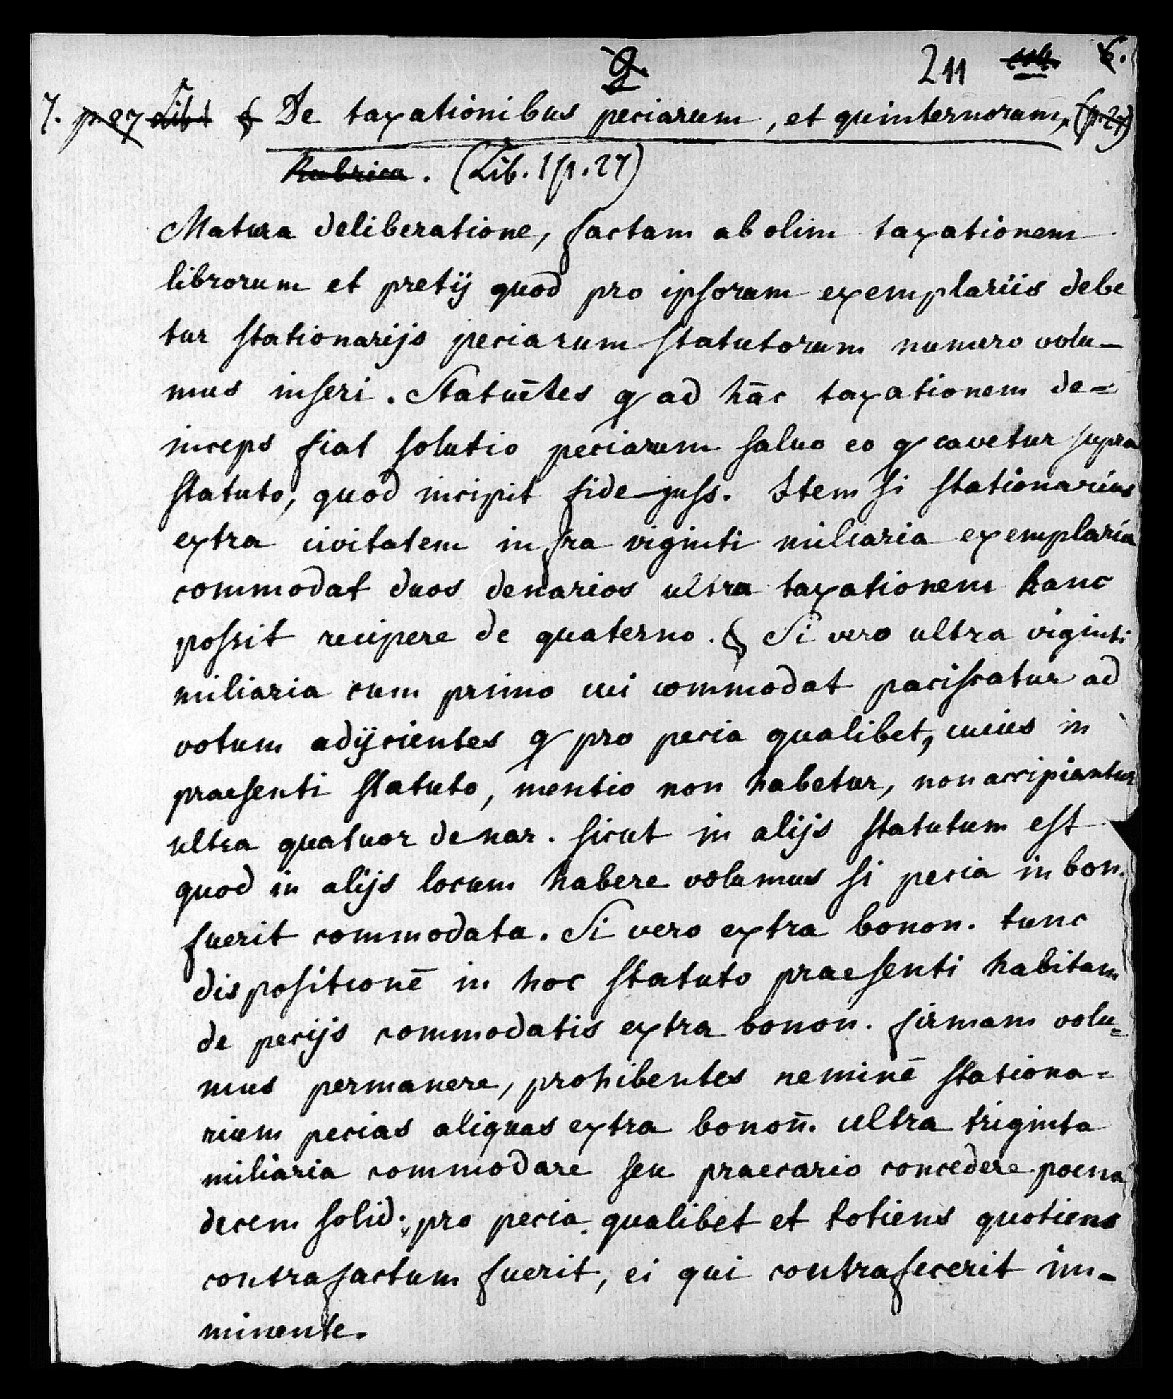 211 6.
7. p. 27 Lib. 1 § De taxationibus peciarum, et quinternorum, (p. 27)
Rubrica. (Lib. 1 p. 27)
Matura deliberatione, factam ab olim taxationem
librorum et pretij quod pro ipsorum exemplariis debe
tur stationarijs peciarum statutorum numero volu-
mus inseri. Statuētes q ad hāc taxationem de=
inceps fiat solutio peciarum saluo eo q cavetur supra
statuto, quod incipit fide-juss. Item si stationarius
extra civitatem infra viginti miliaria exemplaria
commodat duos denarios ultra taxationem hanc
possit recipere de quaterno. § Si vero ultra viginti
miliaria cum primo cui commodat paciscatur ad
votum adijcientes q pro pecia qualibet, cuius in
praesenti statuto, mentio non habetur, non accipiantur
ultra quatuor denar. sicut in alijs statutum est
quod in alijs locum habere volumus si pecia in bon.
fuerit commodata. Si vero extra bonon. tunc
dispositionē in hoc statuto praesenti habitam
de pecijs commodatis extra bonon. firmam volu=
mus permanere, prohibentes neminē stationa=
rium pecias aliquas extra bonon̄. ultra triginta
miliaria commodare seu praecario concedere poena
decem solid: pro pecia qualibet et totiens quotiens
contrafactum fuerit, ei qui contrafecerit im-
minente.